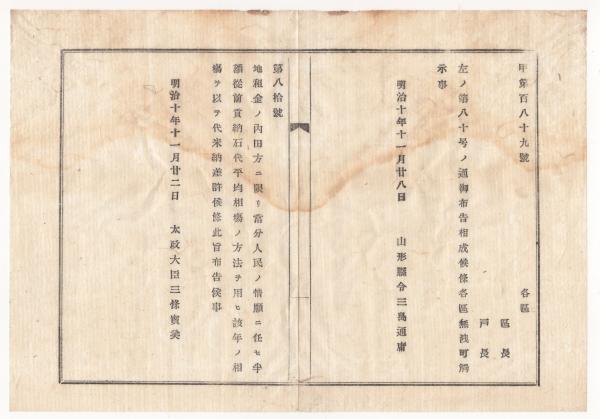 甲第百八十九號
各區
區長
戸長
左ノ第八十号ノ通御布告相成候條各區無洩可觸
示事
明治十年十一月廿八日　山形縣令三島通庸
第八拾號
地租金ノ內田方ニ限リ當分人民ノ情願ニ任セ半
額從前貢納石代平均相塲ノ方法ヲ用ヒ該年ノ相
塲ヲ以テ代米納差許候條此旨布告候事
明治十年十一月廿二日　太政大臣三條實美